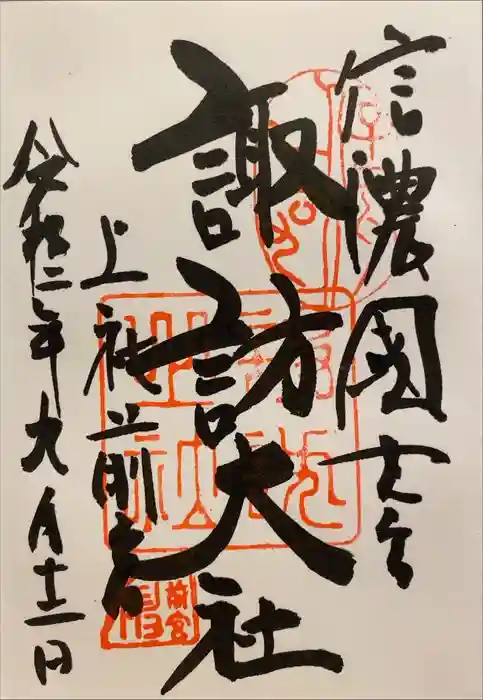 信濃國一之宮
諏訪大社
上社前宮
令和二年六月十二日